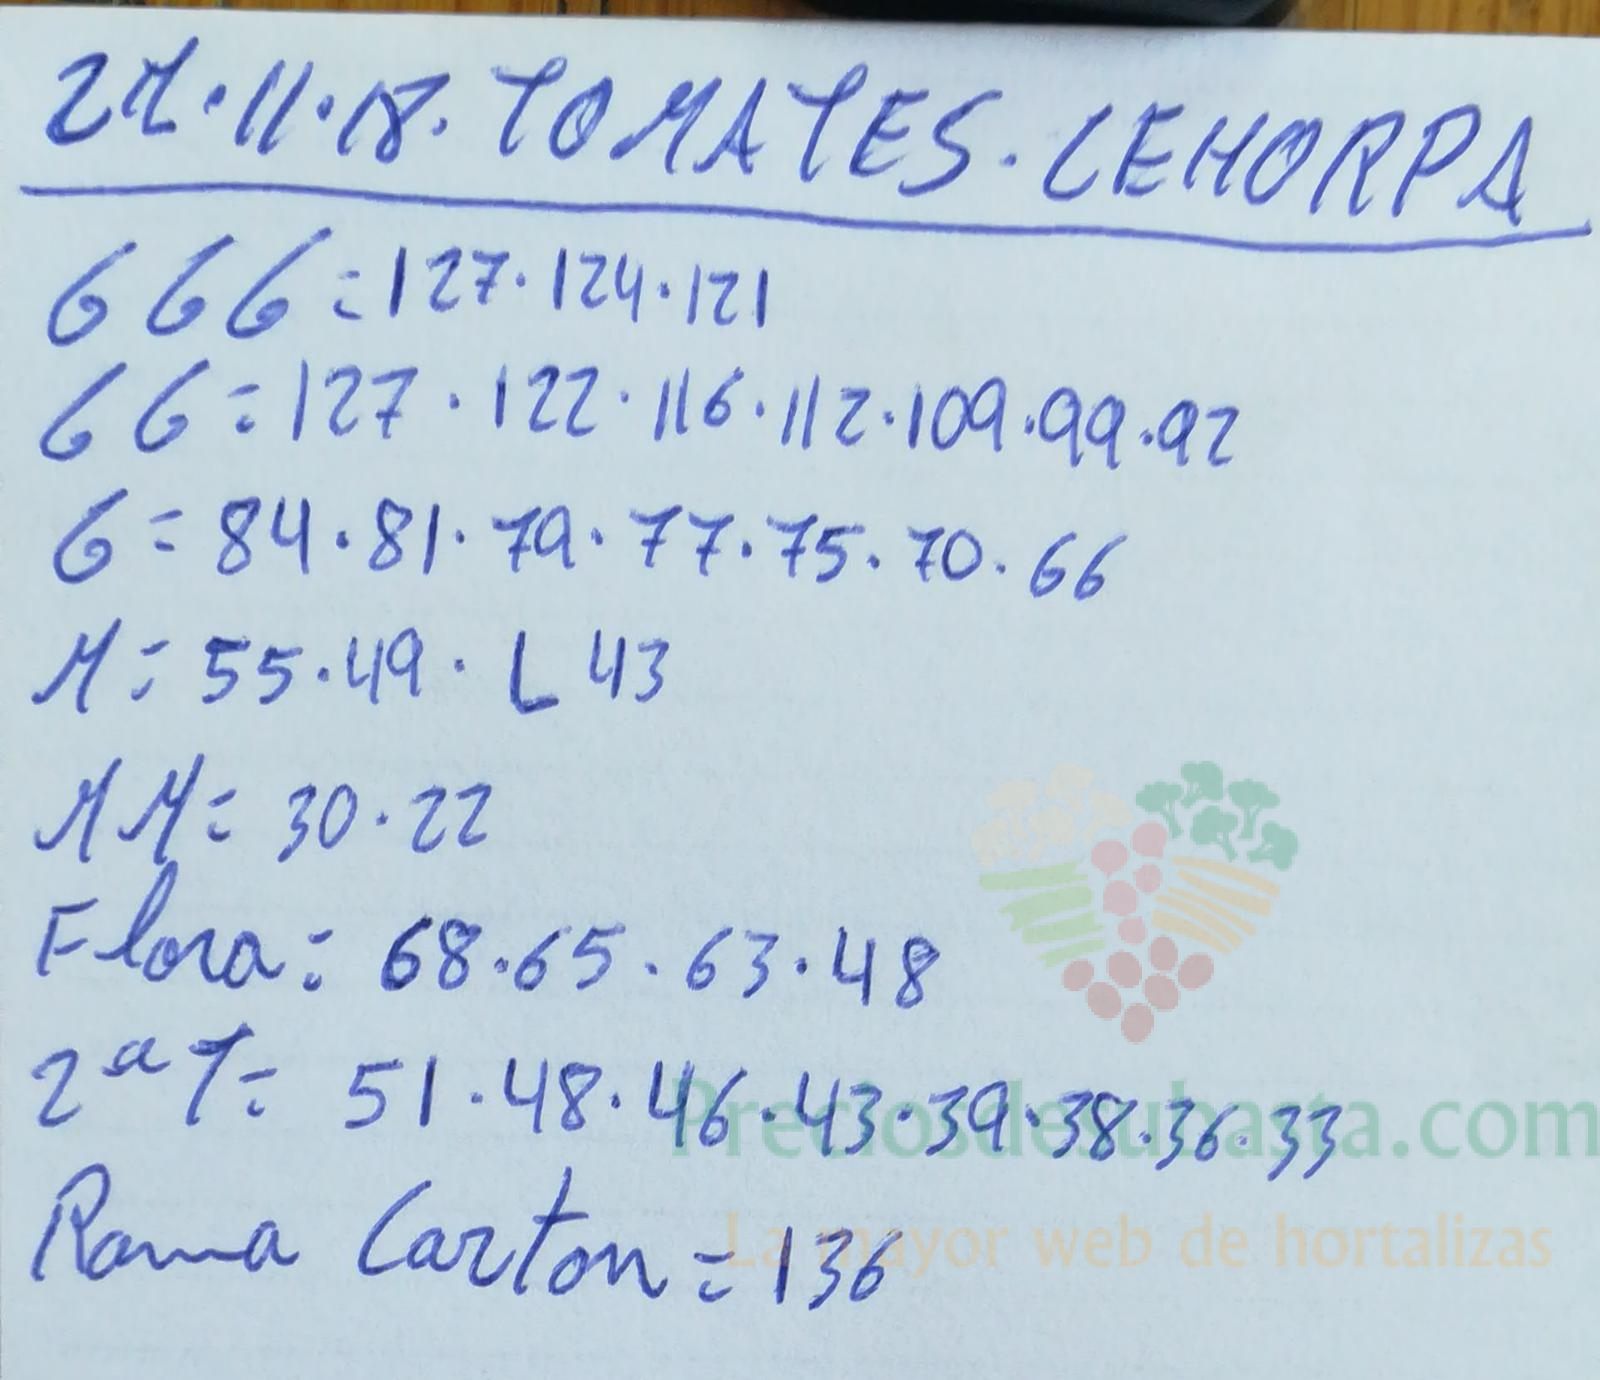 27.11.18. TOMATES. CEHORPA
GGG = 127. 124. 121
GG = 127. 122. 116. 112. 109. 99. 92
G = 84. 81. 79. 77. 75. 70. 66
M = 55. 49. L 43
MM = 30. 22
Flora = 68. 65. 63. 48
2ª T = 51. 48. 46. 43. 39. 38. 36. 33
Rama Carton = 136
Preciosdesubasta.com
La mayor web de hortalizas